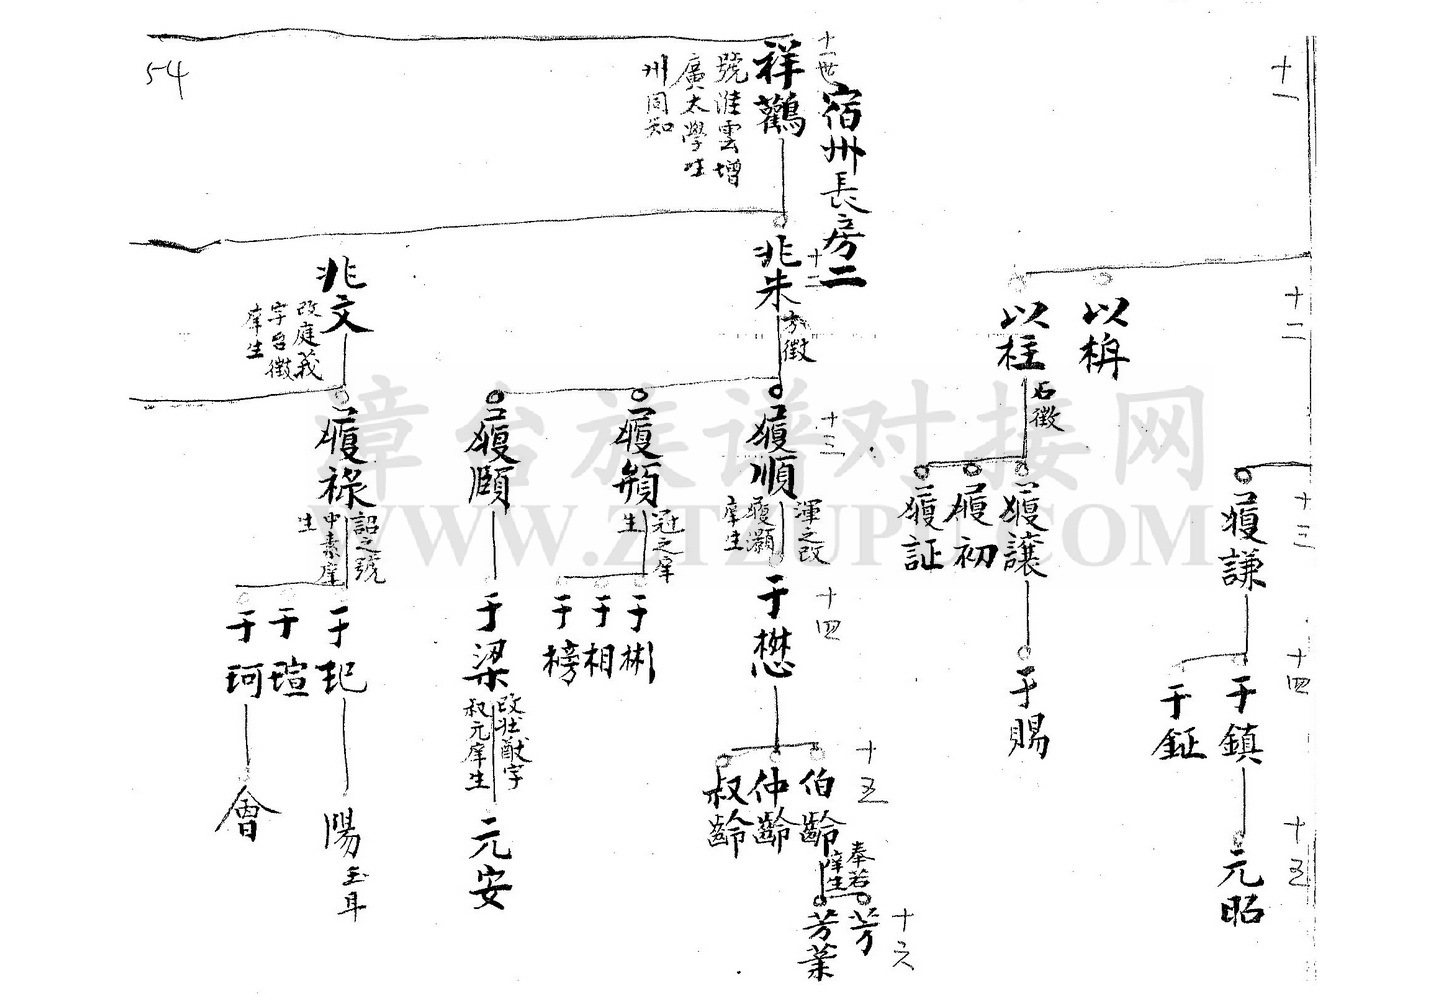 十一
十二
十三
十四
十五
以枬
以柱
石徵
履謙
履讓
履初
履証
于鎮
于鉦
于賜
元昭
宿州長房二
十一世
祥鸛
號淮雲增
廣太學生
州同知
十二
兆朱
方徵
兆文
改庭義
字召徵
庠生
十三
履順
渾之改
履灝
庠生
履頫
冠之庠
生
履頤
履祿
詔之號
中素庠
生
十四
于懋
于彬
于相
于榜
于梁
改壯猷字
叔元庠生
于玘
于瑄
于珂
十五
伯齡
仲齡
叔齡
奉若
庠生
元安
陽
玉耳
會
十六
芳
芳葉
54
漳台族谱对接网
WWW.ZTZUPU.COM